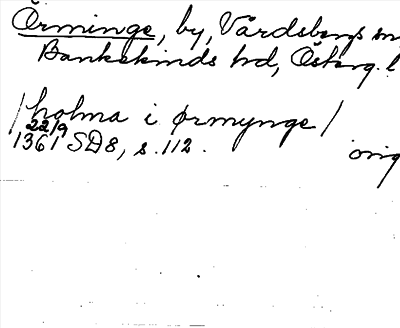 Örminge, by, Vårdsbergs sn,
Bankekinds hd, Österg. l
/holma i ørmynge/
22/9
1361 SD8, s. 112. orig